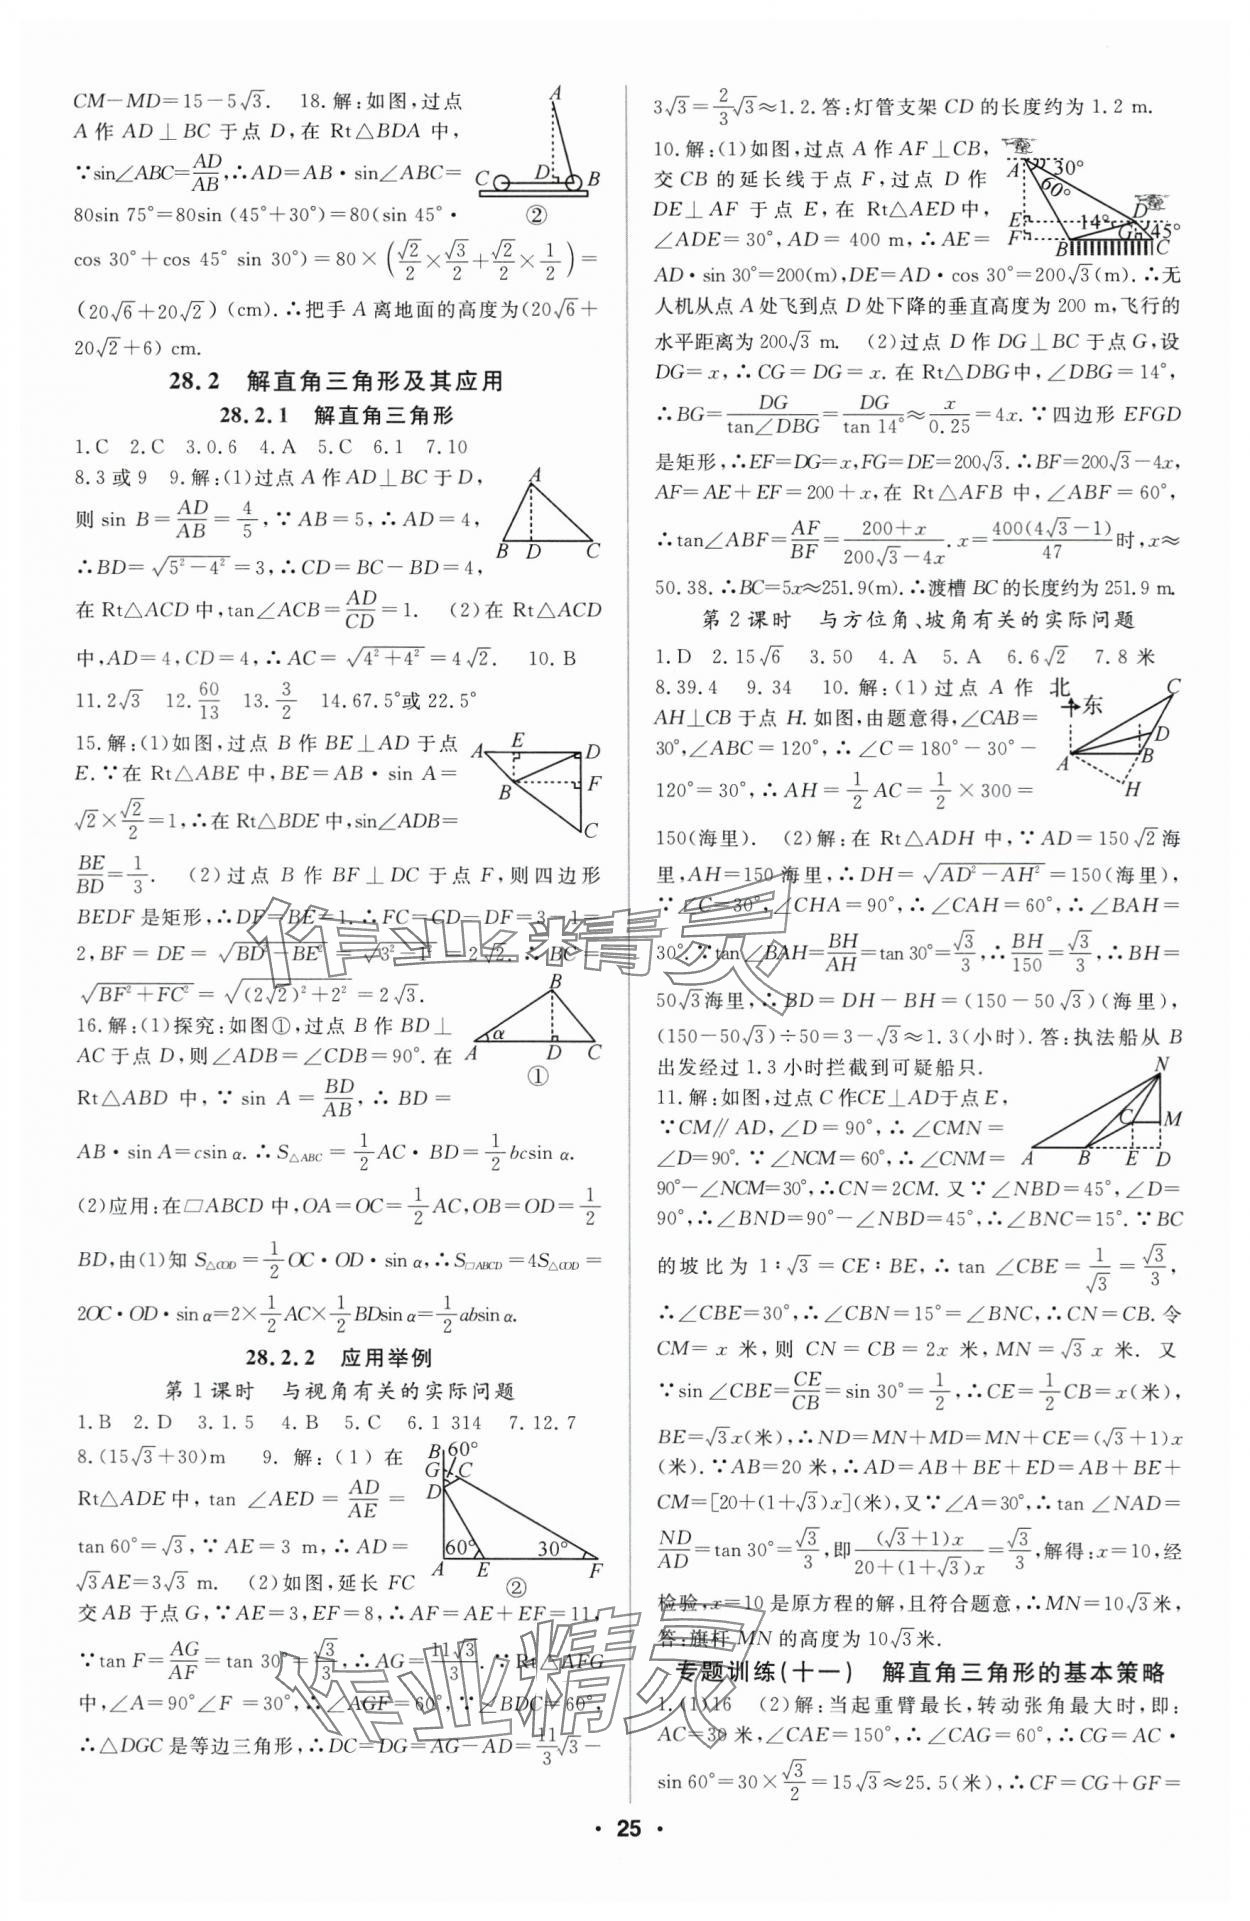 CM－MD＝15－5√3. 18.解:如图,过点
A 作 AD⊥BC 于点 D,在 Rt△BDA 中,
∵sin∠ABC＝AD/AB,∴AD＝AB·sin∠ABC＝
80sin 75°＝80sin (45°＋30°)＝80(sin 45°·
cos 30°＋cos 45° sin 30°)＝80×(√2/2×√3/2＋√2/2×1/2)＝
(20√6＋20√2)(cm).∴把手 A 离地面的高度为(20√6＋
20√2＋6) cm.
A
C D B
②
28.2 解直角三角形及其应用
28.2.1 解直角三角形
1.C 2.C 3.0.6 4.A 5.C 6.1 7.10
8.3 或 9 9.解:(1)过点 A 作 AD⊥BC 于 D,
则 sin B＝AD/AB＝4/5,∵AB＝5,∴AD＝4,
∴BD＝√(5²－4²)＝3,∴CD＝BC－BD＝4,
在 Rt△ACD 中,tan∠ACB＝AD/CD＝1. (2)在 Rt△ADC
中,AD＝4,CD＝4,∴AC＝√(4²＋4²)＝4√2. 10.B
A
B D C
11.2√3 12.60/13 13.3/2 14.67.5°或 22.5°
15.解:(1)如图,过点 B 作 BE⊥AD 于点
E.∵在 Rt△ABE 中,BE＝AB·sin A＝
√2×√2/2＝1,∴在 Rt△BDE 中,sin∠ADB＝
BE/BD＝1/3. (2)过点 B 作 BF⊥DC 于点 F,则四边形
BEDF 是矩形,∴DF＝BE＝1.∴FC＝CD－DF＝3－1＝
2,BF＝DE＝√(BD²－BE²)＝√(3²－1²)＝2√2.∴BC＝
√(BF²＋FC²)＝√((2√2)²＋2²)＝2√3.
A E D
B F
C
16.解:(1)探究:如图①,过点 B 作 BD⊥
AC 于点 D,则∠ADB＝∠CDB＝90°.在
Rt△ABD 中,∵sin A＝BD/AB,∴BD＝
AB·sin A＝csin α.∴S△ABC＝1/2AC·BD＝1/2bcsin α.
B
A α D C
①
(2)应用:在□ABCD 中,OA＝OC＝1/2AC,OB＝OD＝1/2
BD,由(1)知 S△COD＝1/2OC·OD·sin α,∴S□ABCD＝4S△COD＝
2OC·OD·sin α＝2×1/2AC×1/2BDsin α＝1/2absin α.
28.2.2 应用举例
第 1 课时 与视角有关的实际问题
1.B 2.D 3.1.5 4.B 5.C 6.1 314 7.12.7
8.(15√3＋30)m 9. 解:(1) 在
Rt△ADE 中, tan ∠AED＝AD/AE＝
tan 60°＝√3,∵AE＝3 m,∴AD＝
√3AE＝3√3 m. (2)如图,延长 FC
交 AB 于点 G,∵AE＝3,EF＝8,∴AF＝AE＋EF＝11,
∵tan F＝AG/AF＝tan 30°＝√3/3,∴AG＝11√3/3.∵Rt△AFG
中,∠A＝90°∠F＝30°,∴∠AGF＝60°,∵∠BDC＝60°,
∴△DGC 是等边三角形,∴DC＝DG＝AG－AD＝11/3√3－
B 60°
G C
D
60° 30°
A E F
②
3√3＝2/3√3≈1.2.答:灯管支架 CD 的长度约为 1.2 m.
10.解:(1)如图,过点 A 作 AF⊥CB,
交 CB 的延长线于点 F,过点 D 作
DE⊥AF 于点 E,在 Rt△AED 中,
∠ADE＝30°,AD＝400 m,∴AE＝
AD·sin 30°＝200(m),DE＝AD·cos 30°＝200√3(m).∴无
人机从点 A 处飞到点 D 处下降的垂直高度为 200 m,飞行的
水平距离为 200√3 m. (2)过点 D 作 DG⊥BC 于点 G,设
DG＝x,∴CG＝DG＝x.在 Rt△DBG 中,∠DBG＝14°,
∴BG＝DG/tan∠DBG＝DG/tan 14°≈x/0.25＝4x.∵四边形 EFGD
是矩形,∴EF＝DG＝x,FG＝DE＝200√3.∴BF＝200√3－4x,
AF＝AE＋EF＝200＋x,在 Rt△AFB 中,∠ABF＝60°,
∴tan∠ABF＝AF/BF＝(200＋x)/(200√3－4x).x＝400(4√3－1)/47时,x≈
50.38.∴BC＝5x≈251.9(m).∴渡槽 BC 的长度约为 251.9 m.
A 30°
60°
E 14° D
F B G 45° C
第 2 课时 与方位角、坡角有关的实际问题
1.D 2.15√6 3.50 4.A 5.A 6.6√2 7.8 米
8.39.4 9.34 10.解:(1)过点 A 作
AH⊥CB 于点 H.如图,由题意得,∠CAB＝
30°,∠ABC＝120°,∴∠C＝180°－30°－
120°＝30°,∴AH＝1/2AC＝1/2×300＝
150(海里). (2)解:在 Rt△ADH 中,∵AD＝150√2海
里,AH＝150 海里,∴DH＝√(AD²－AH²)＝150(海里),
∵∠C＝30°,∠CHA＝90°,∴∠CAH＝60°,∴∠BAH＝
30°.∵tan∠BAH＝BH/AH＝tan 30°＝√3/3,∴BH/150＝√3/3,∴BH＝
50√3海里,∴BD＝DH－BH＝(150－50√3)(海里),
(150－50√3)÷50＝3－√3≈1.3(小时).答:执法船从 B
出发经过 1.3 小时拦截到可疑船只.
北 东
C
D
A B
H
11.解:如图,过点 C 作CE⊥AD于点 E,
∵CM∥AD,∠D＝90°,∴∠CMN＝
∠D＝90°.∵∠NCM＝60°,∴∠CNM＝
90°－∠NCM＝30°,∴CN＝2CM.又∵∠NBD＝45°,∠D＝
90°,∴∠BND＝90°－∠NBD＝45°,∴∠BNC＝15°.∵BC
的坡比为 1∶√3＝CE∶BE,∴tan ∠CBE＝1/√3＝√3/3,
∴∠CBE＝30°,∴∠CBN＝15°＝∠BNC,∴CN＝CB.令
CM＝x 米,则 CN＝CB＝2x 米,MN＝√3x 米. 又
∵sin∠CBE＝CE/CB＝sin 30°＝1/2,∴CE＝1/2CB＝x(米),
BE＝√3x(米),∴ND＝MN＋MD＝MN＋CE＝(√3＋1)x
(米).∵AB＝20 米,∴AD＝AB＋BE＋ED＝AB＋BE＋
CM＝[20＋(1＋√3)x](米),又∵∠A＝30°,∴tan ∠NAD＝
ND/AD＝tan 30°＝√3/3,即(√3＋1)x/(20＋(1＋√3)x)＝√3/3,解得:x＝10,经
检验,x＝10 是原方程的解,且符合题意,∴MN＝10√3米,
答:旗杆 MN 的高度为 10√3米.
N
C M
A B E D
专题训练(十一) 解直角三角形的基本策略
1.(1)16 (2)解:当起重臂最长,转动张角最大时,即:
AC＝30 米,∠CAE＝150°,∴∠CAG＝60°,∴CG＝AC·
sin 60°＝30×√3/2＝15√3≈25.5(米),∴CF＝CG＋GF＝
· 25 ·
作业精灵
作业精灵